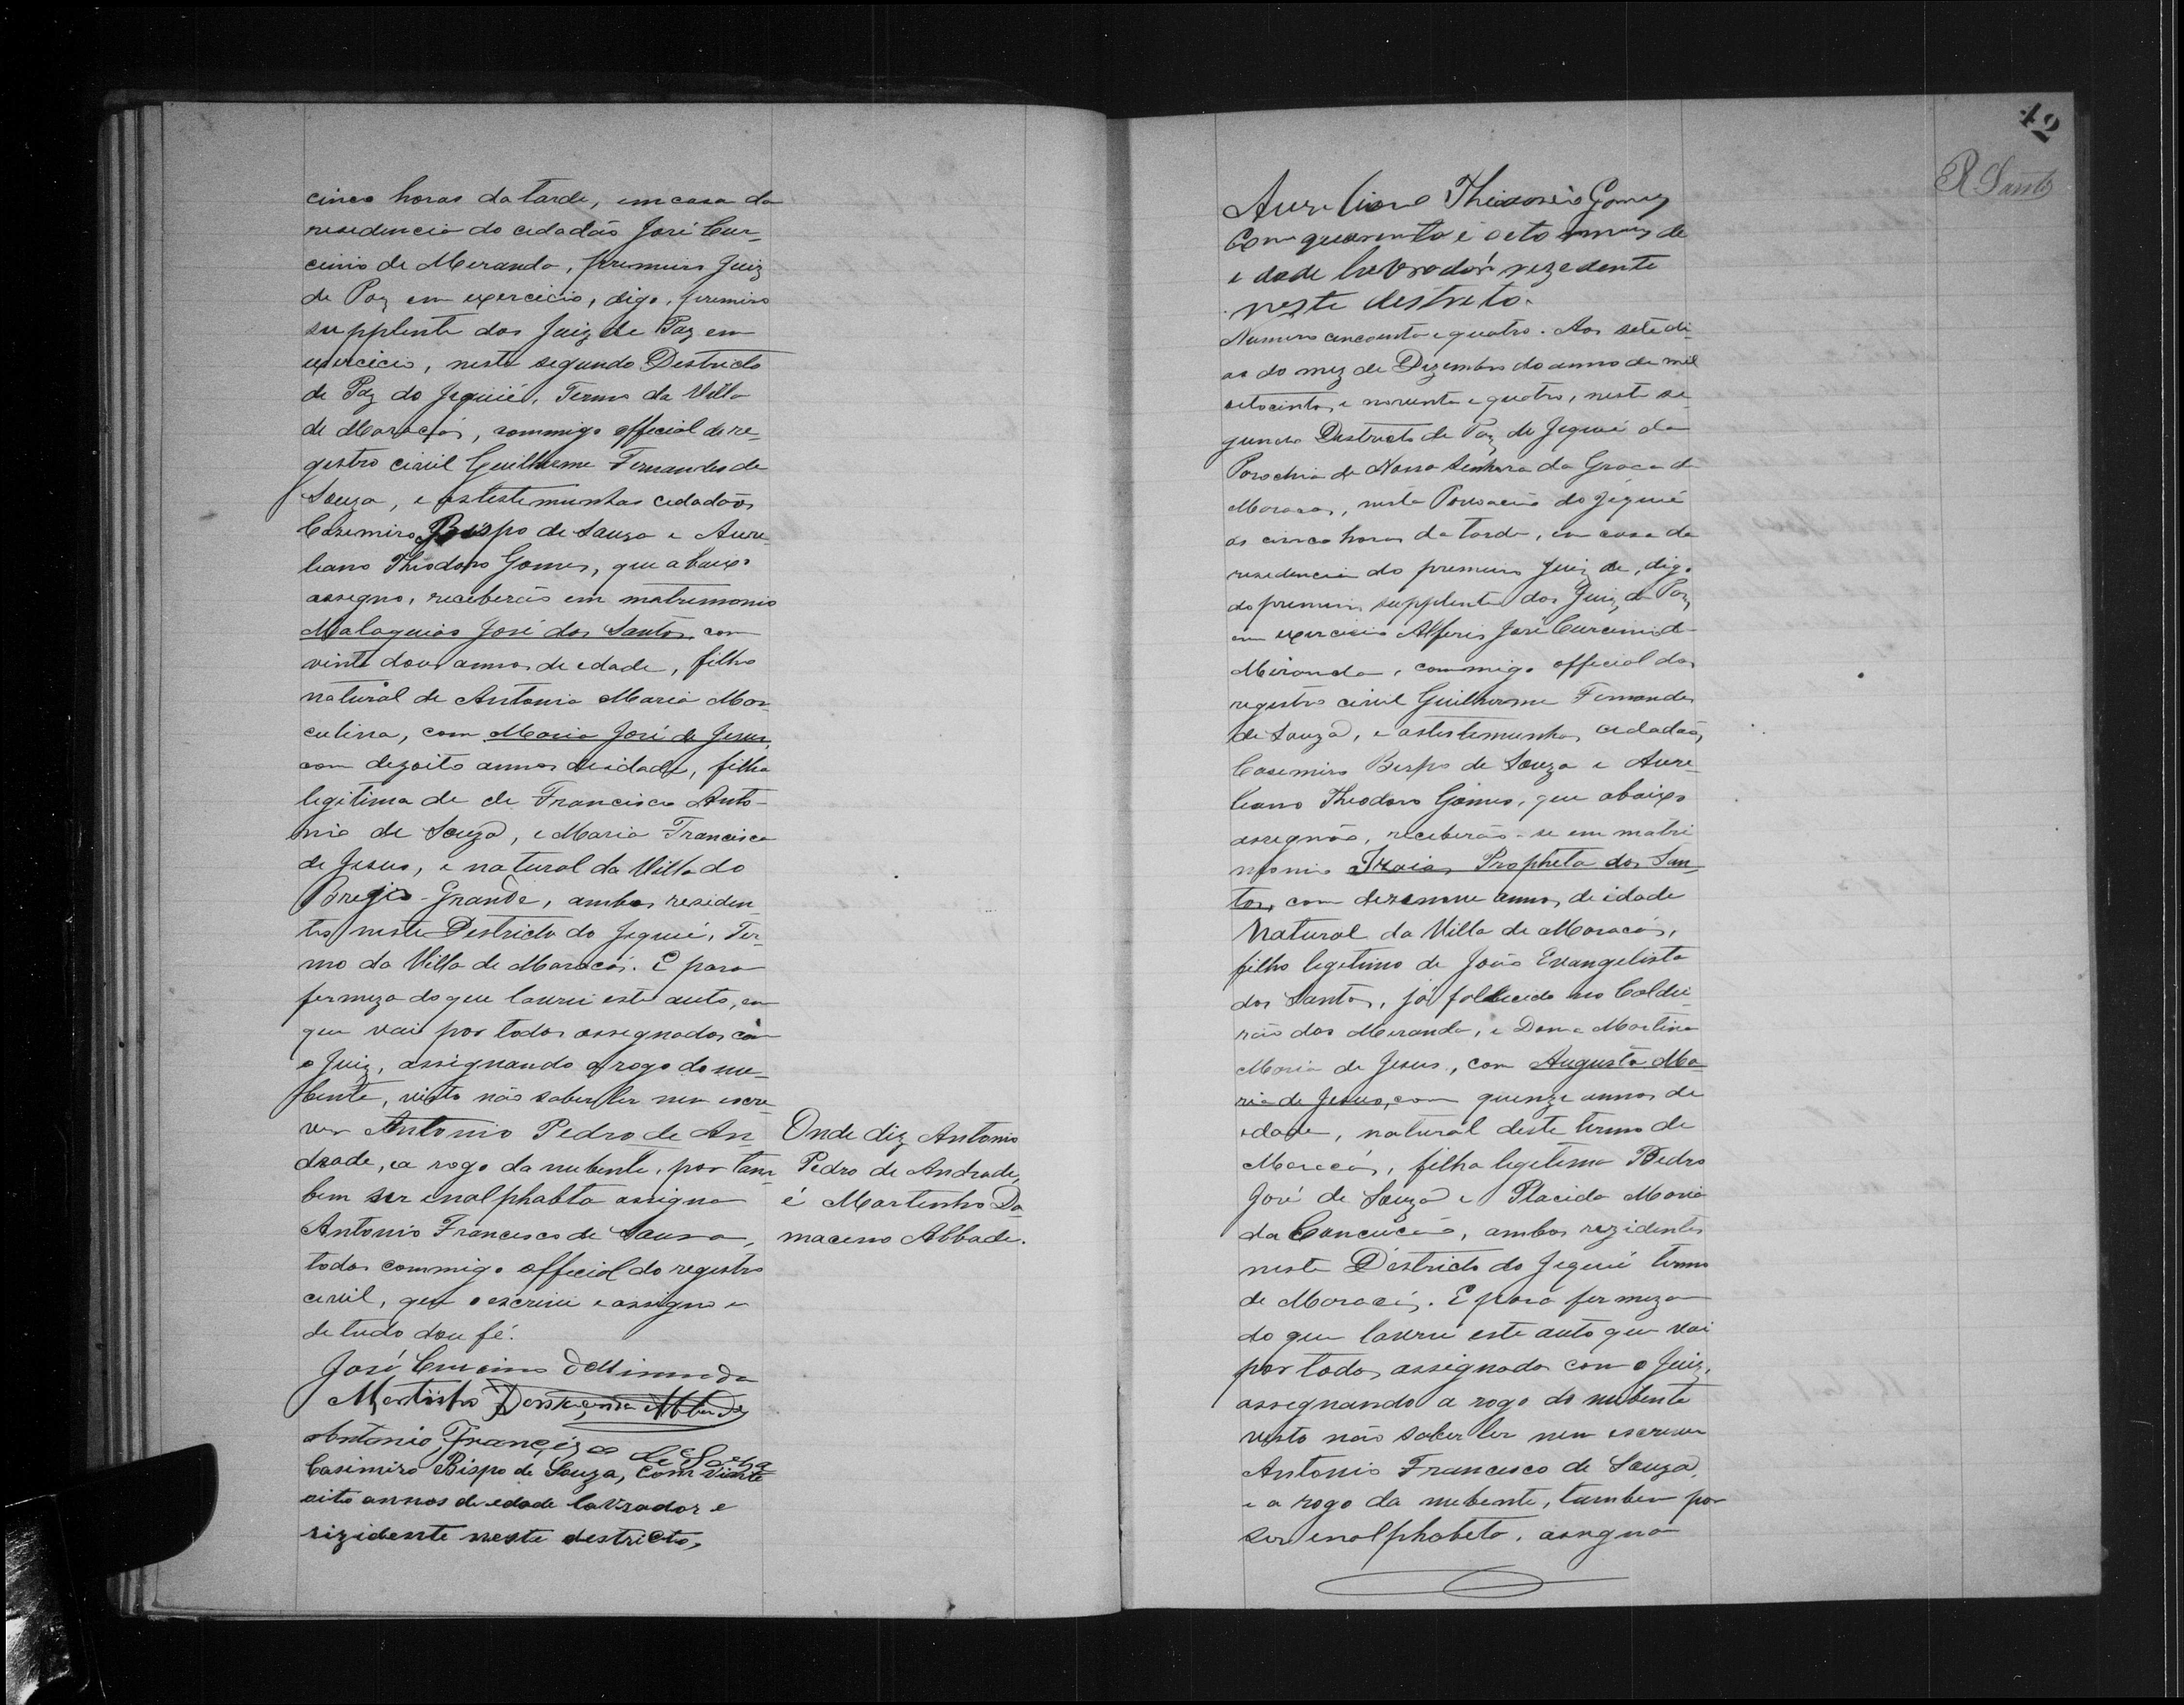 cinco horas da tarde, em casa da
residencia do cidadão José Cur-
cinio de Meranda, premeiro Juiz
de Paz em exercicio, digo, premeiro
supplente dos Juiz de Paz em
exercicio, neste segundo Destricto
de Paz do Jequié, Termo da Villa
de Maracás, commigo official de re-
gestro civil Guilherme Fernandes de
Souza, e as testemunhas cidadãos
Casemiro Bispo de Souza e Aure-
leano Theodoro Gomes, que abaixo
assegno, receberão em matremonio
Malaquias José dos Santos, com
vinte dous annos de edade, filho
natural de Antonia Maria Mar-
culina, com Maria José de Jesus,
com dezoito annos de idade, filha
legitima de de Francisco Anto-
nio de Souza, e Maria Francisca
de Jesus, e natural da Villa do
Brejo-Grande, ambos residen-
tes neste Destricto do Jequié, Ter-
mo da Villa de Maracás. E para
fermeza do que lavrei este auto, em
que vai por todos assegnados com
o Juiz, assignando a rogo do nu-
bente, visto não saber ler nem escre-
ver Antonio Pedro de An-
drade, e a rogo da nubente, por tam-
bem ser analphabta assigna
Antonio Francesco de Sousa,
todos commigo official do registro
civil, que o escrevi e assigno e
de tudo dou fé.
José Curcino de Miranda
Martinho Damaceno Abbade
Antonio Francisco de Souza
Casimiro Bispo de Souza, com vinte
oito annos de edade lavrador e
rizidente neste destricto,
Onde diz Antonio
Pedro de Andrade,
é Martinho Da-
maceno Abbade.
42
R Santos
Aureliano Theodorio Gomes
Com quarenta e oito annos de
e dade lavrador rezedente
neste destreto.
Numero cincoenta e quatro. Aos sete di-
as do mez de Dezembro do anno de mil
oitocentos e noventa e quatro, neste se-
gundo Destricto de Paz de Jequié da
Parochia de Nossa Senhora da Graça de
Maracás, nesta Povoação do Jequié
as cinco horas da tarde, em casa da
residencia do premeiro Juiz de, digo
do premeiro supplente dos Juiz de Paz
em exercicio Alferes José Curcinio de
Miranda, commigo official dos
registro civil Guilherme Fernandes
de Souza, e as testemunhas cidadãos
Casemiro Bispo de Souza e Aure-
leano Theodoro Gomes, que abaixo
assegnão, receberão-se em matri
monio Izaias Propheta dos San-
tos, com dezenove annos de idade
Natural da Villa de Maracás,
filho legetimo de João Evangelista
dos Santos, já fallecido no Caldei-
rão dos Meranda, e Dona Martina
Maria de Jesus, com Augusta Ma-
ria de Jesus, com quenze annos de
edade, natural deste termo de
Maracás, filha legetima Pedro
José de Souza e Placida Maria
da Conceição, ambos rezidentes
neste Destricto do Jequié termo
de Maracás. E para fermeza
do que lavrei este auto que vai
por todos assignado com o Juiz,
assegnando a rogo do nubente
visto não saber ler nem escrever
Antonio Francesco de Souza,
e a rogo da nubente, tambem por
ser analphabeta, assegna